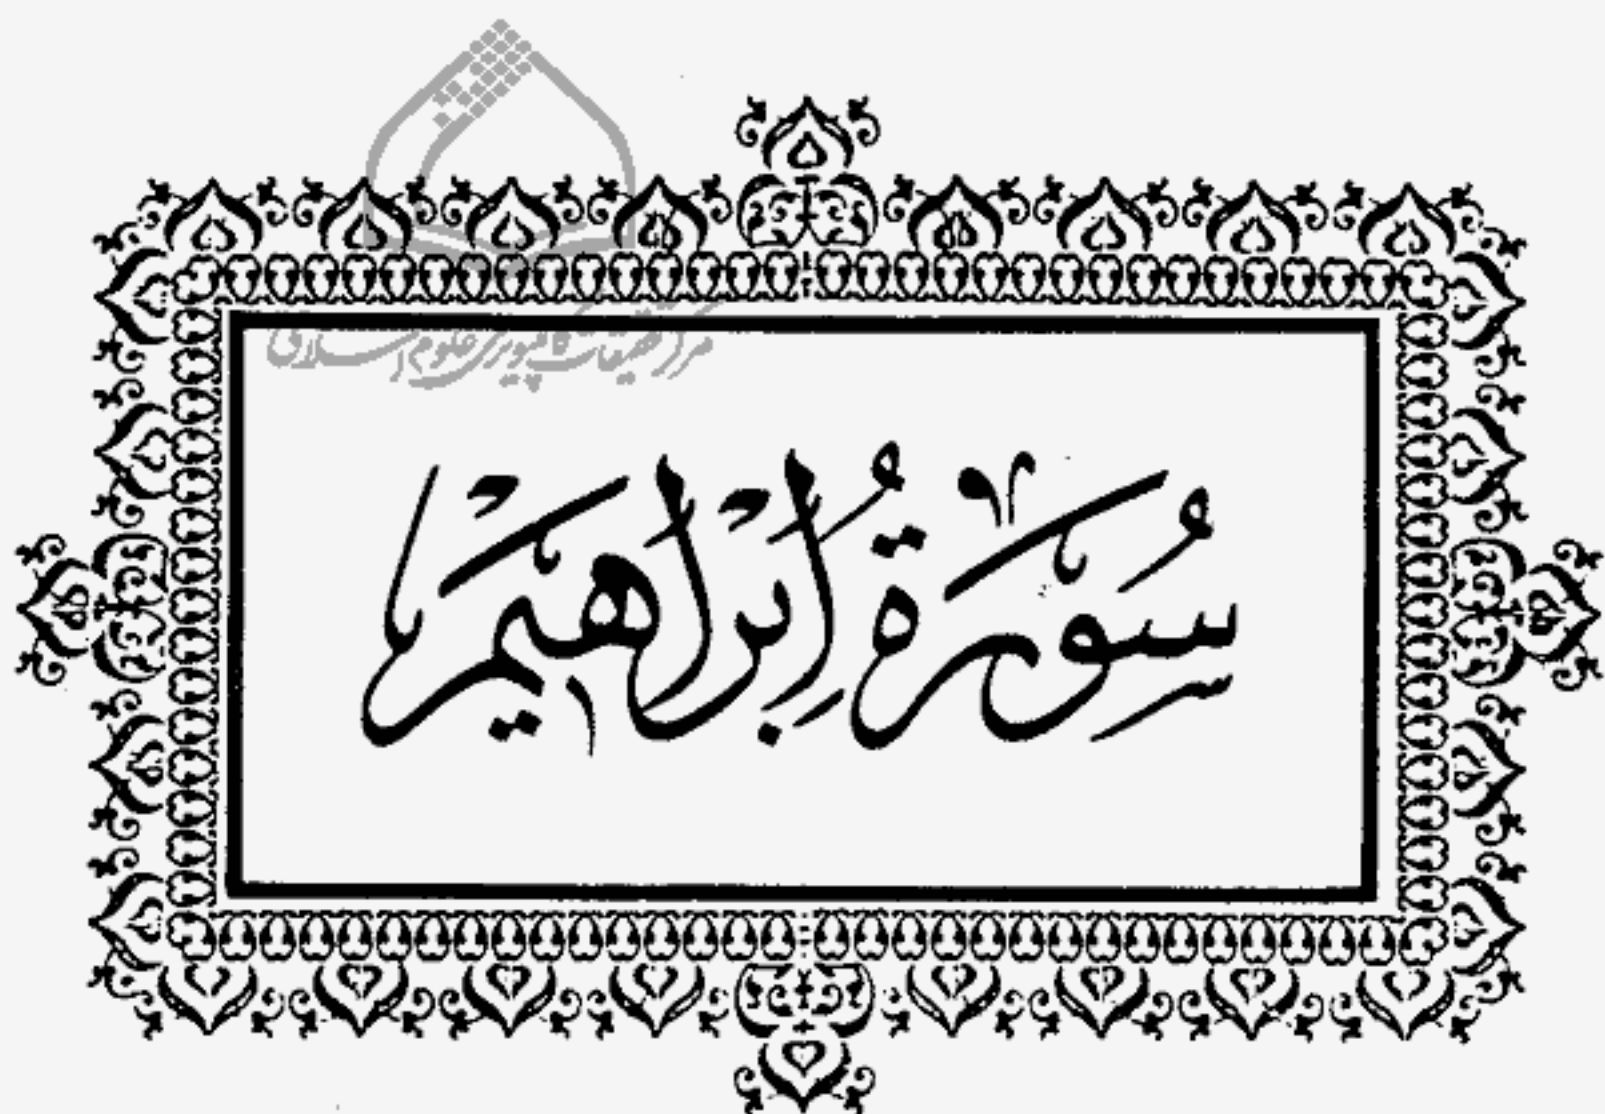 مرکز تحقیقات کامپیوتری علوم اسلامی
سُورَةُ اِبْرَاهِیْم